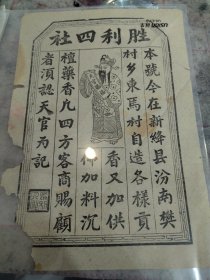 胜利四社
本號今在新绛县汾南樊
村乡東馬村自造各樣貢
香又加供
加料沉
檀藥香凡四方客商賜顧
者須認天官為記